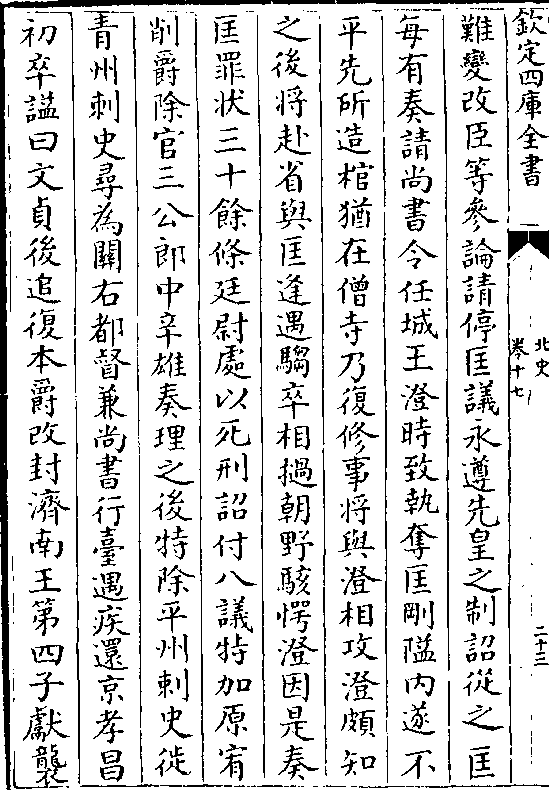 欽定四庫全書
北史
卷十七
二十三
難變改臣等參論請停匡議永遵先皇之制詔從之匡
每有奏請尚書令任城王澄時致執奪匡剛隘内遂不
平先所造棺猶在僧寺乃復修事將與澄相攻澄頗知
之後將赴省與匡逢遇騶卒相撾朝野駭愕澄因是奏
匡罪狀三十餘條廷尉處以死刑詔付八議特加原宥
削爵除官三公郎中辛雄奏理之後特除平州刺史徙
青州刺史尋為關右都督兼尚書行臺遇疾還京孝昌
初卒諡曰文貞後追復本爵改封濟南王第四子獻襲